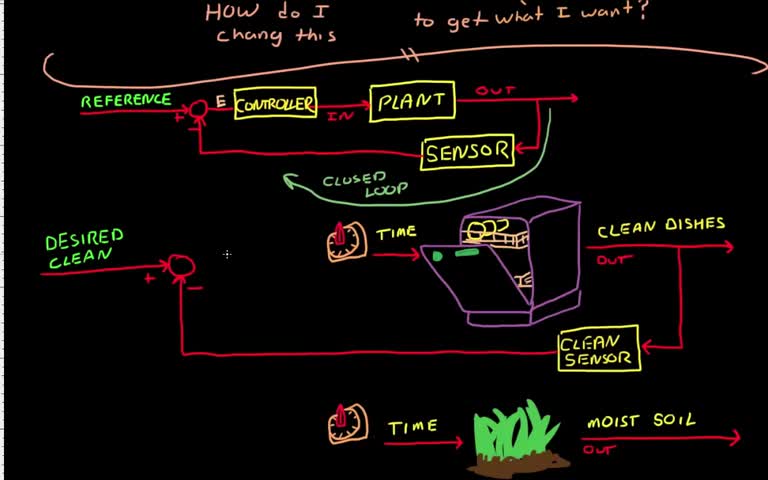 HOW do I
chang this
to get what I want?
REFERENCE
+
−
E
CONTROLLER
IN
PLANT
OUT
SENSOR
CLOSED
LOOP
DESIRED
CLEAN
+
−
TIME
CLEAN DISHES
OUT
CLEAN
SENSOR
TIME
MOIST SOIL
OUT